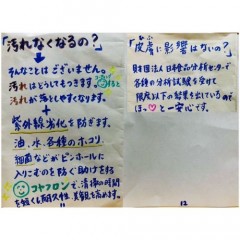 「汚れなくなるの？」
そんなことはございません。
汚れはどうしてもつきます。
汚れが落としやすくなります。
+
紫外線劣化を防ぎます。
油、水、各種のホコリ
細菌などがピンホールに
入りこむのを防ぐ助けをする
コヤフロンで、清掃の時間
を短くも耐久性、美観を高めます。
11
「皮膚に影響はないの？」
ひふ
財団法人日本食品分析センターで
各種の分析試験を受けて
限度以下の結果を出しているので
ほっ♡と一安心です。
12